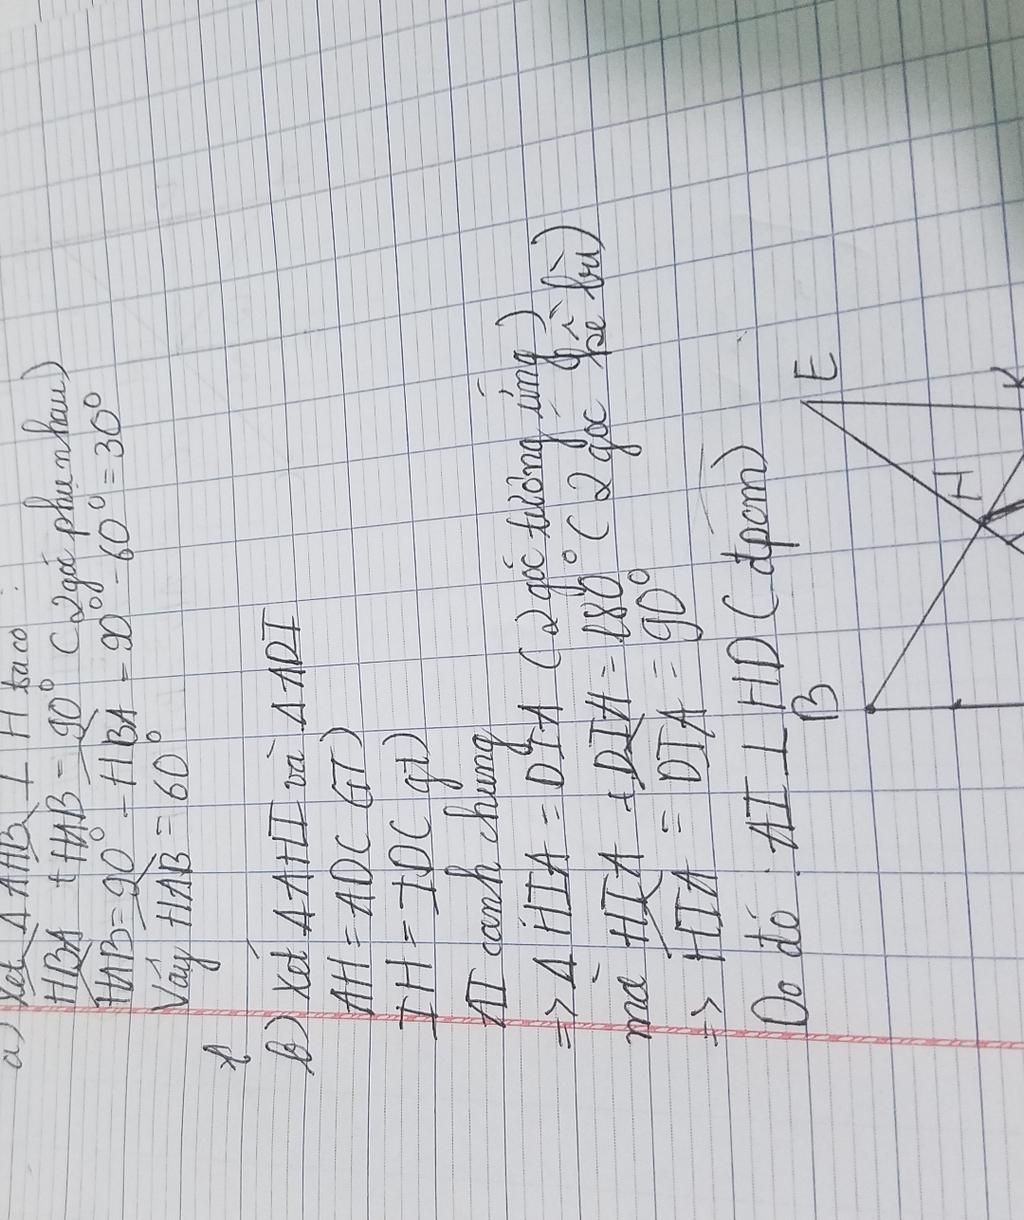 a) Xét Δ AHB ⊥ H ta có:
HBA + HAB = 90° (2 góc phụ nhau)
HAB = 90° - HBA = 90° - 60° = 30°
Vậy HAB = 60°
b) Xét Δ AHI và Δ ADI
AH = AD (GT)
IH = ID (gt)
AI canh chung
=> Δ HIA = DIA (2 góc tương ứng)
mà HIA + DIA = 180° (2 góc kề bù)
=> HIA = DIA = 90°
Do đó: AI ⊥ HD (đpcm)
B
E
H
K